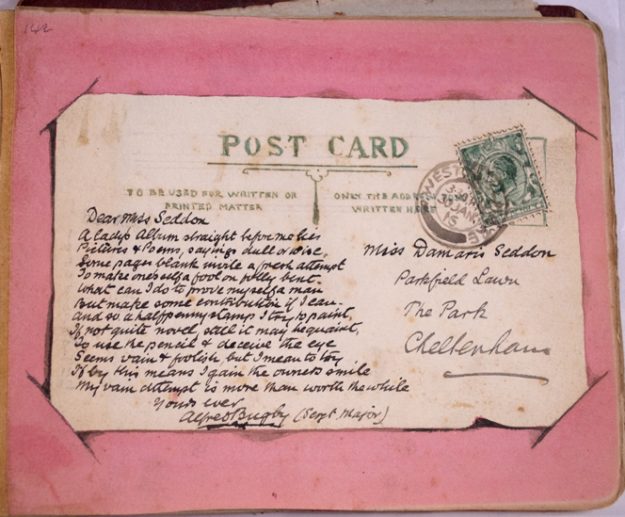 142
POST CARD
TO BE USED FOR WRITTEN OR
PRINTED MATTER
ONLY THE ADDRESS
WRITTEN HERE
Dear Miss Seddon
A Ladys Album straight before me lies
Pictures & Poems, sayings dull or wise,
Some pages blank invite a fresh attempt
To make oneself a fool on folly bent.
What can I do to prove myself a man
But make some contribution if I can.
And so a halfpenny stamp I try to paint,
If not quite novel, still it may be quaint,
To use the pencil & deceive the eye
Seems vain & foolish but I mean to try
If by this means I gain the owners smile
My vain attempt is more than worth the while
Yours ever
Alfred Bugby (Sergt Major)
Miss Damaris Seddon
Parkfield Lawn
The Park
Cheltenham